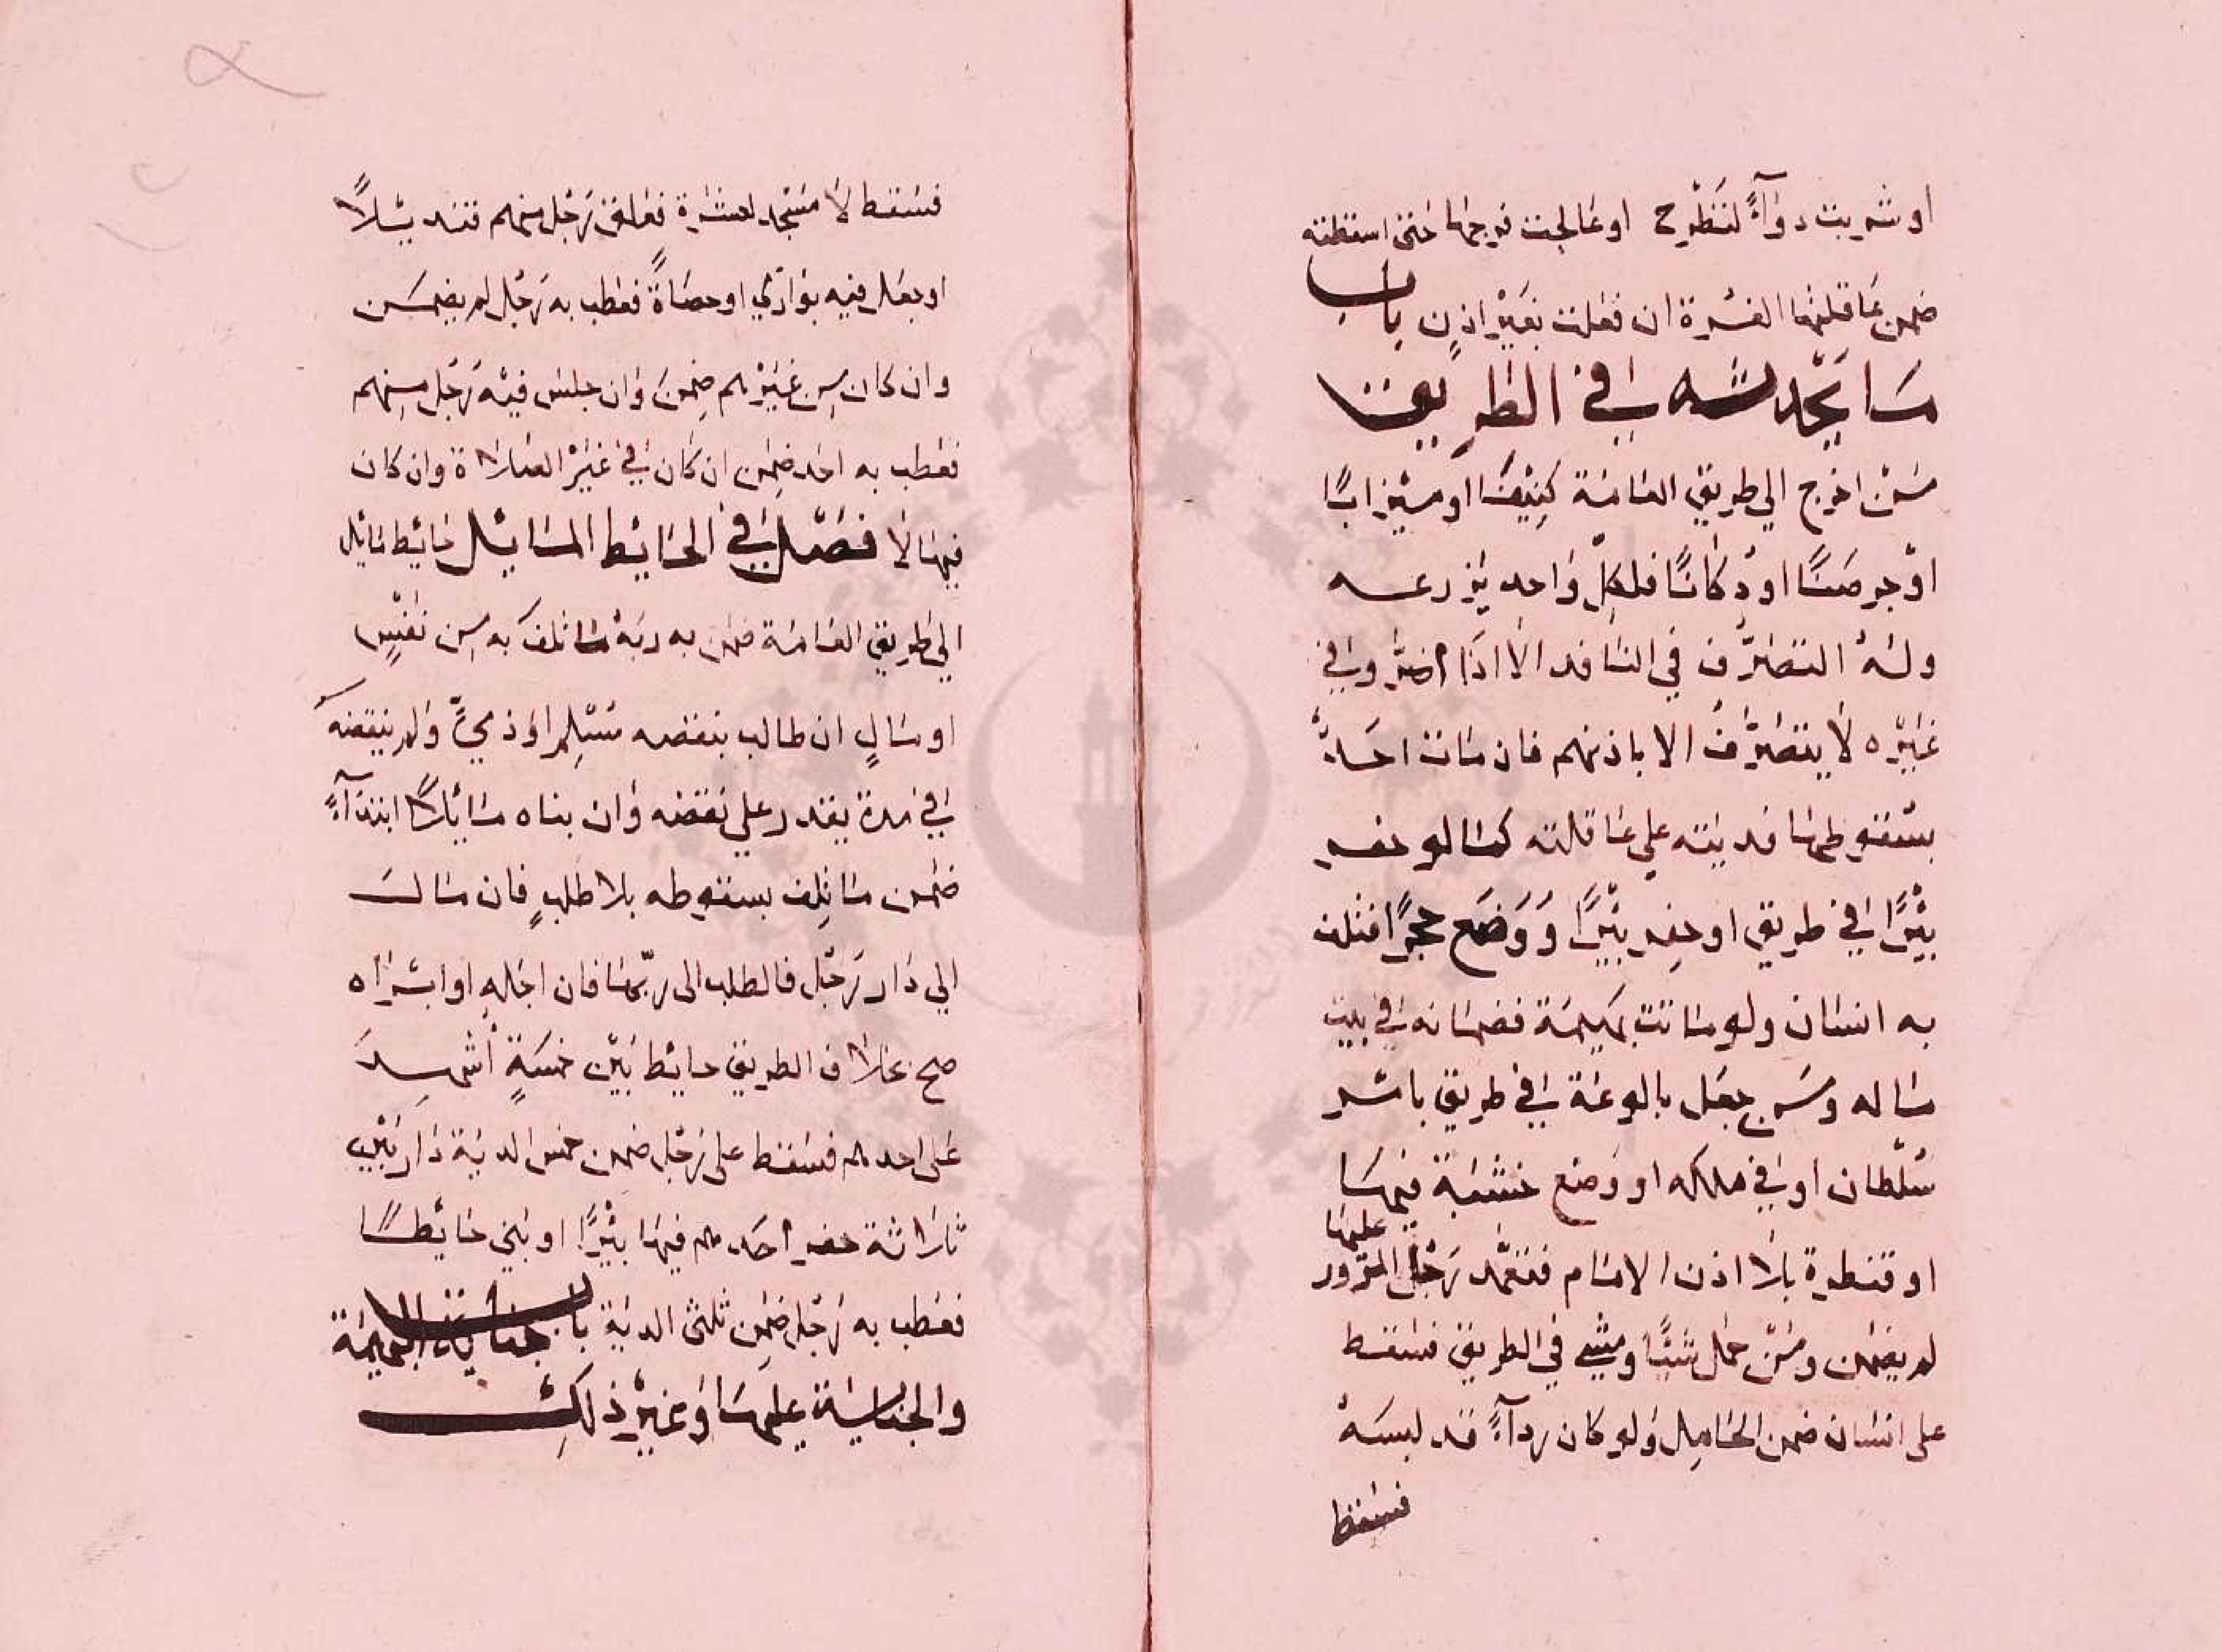 او شربت دوآءً لتطرح او عالجت فرجها حتى اسقطته
ضمن عاقلتها الغرة ان فعلت بغير اذنٍ باب
ما يحدثه في الطريق
من اخرج الي طريق العامة كنيفًا او ميزابًا
او جرصنًا او دكانًا فلكلّ واحد نزعه
وله التصرّف في النافذ الا اذا اضرّ وفي
غيره لا يتصرف الا باذنهم فان مات احدٌ
بسقوطها فديته علي عاقلته كما لو حفر
بيرًا في طريق او حفر بيرًا ووضع حجرًا فتلف
به انسان ولو ماتت بهيمة فضمانه في بيت
ماله ومن جعل بالوعة في طريق بامر
سلطان او في ملكه او وضع خشبة فيها
او قنطرة بلا اذن الامام فتعمّد رجل المرور عليها
لم يضمن ومن حمل شيًا ومشي في الطريق فسقط
على انسان ضمن الحامل ولو كان ردآءً قد لبسه
فسقط
فسقط لا مسجد لعشرة فعلق رجل منهم قنديلًا
او جعل فيه بواري او حصاةً فعطب به رجل لم يضمن
وان كان من غيرهم ضمن وان جلس فيه رجل منهم
فعطب به احد ضمن ان كان في غير الصلاة وان كان
فيها لا فصل في الحايط المايل حايط مايل
الي طريق العامة ضمن به ربه ما تلف به من نفسٍ
او مالٍ ان طالب بنقضه مسلم او ذميّ ولم ينقضه
في مدة يقدر علي نقضه وان بناه مايلًا ابتدآءً
ضمن ما تلف بسقوطه بلا طلبٍ فان مال
الي دار رجل فالطلب الى ربّها فان اجله او ابراه
صح بخلاف الطريق حايط بين خمسةٍ اشهد
على احدهم فسقط على رجل ضمن خمس الدية دار بين
ثلاثة حفر احدهم فيها بيرًا او بني حايطًا
فعطب به رجل ضمن ثلثي الدية باب جناية البهيمة
والجناية عليها وغير ذلك